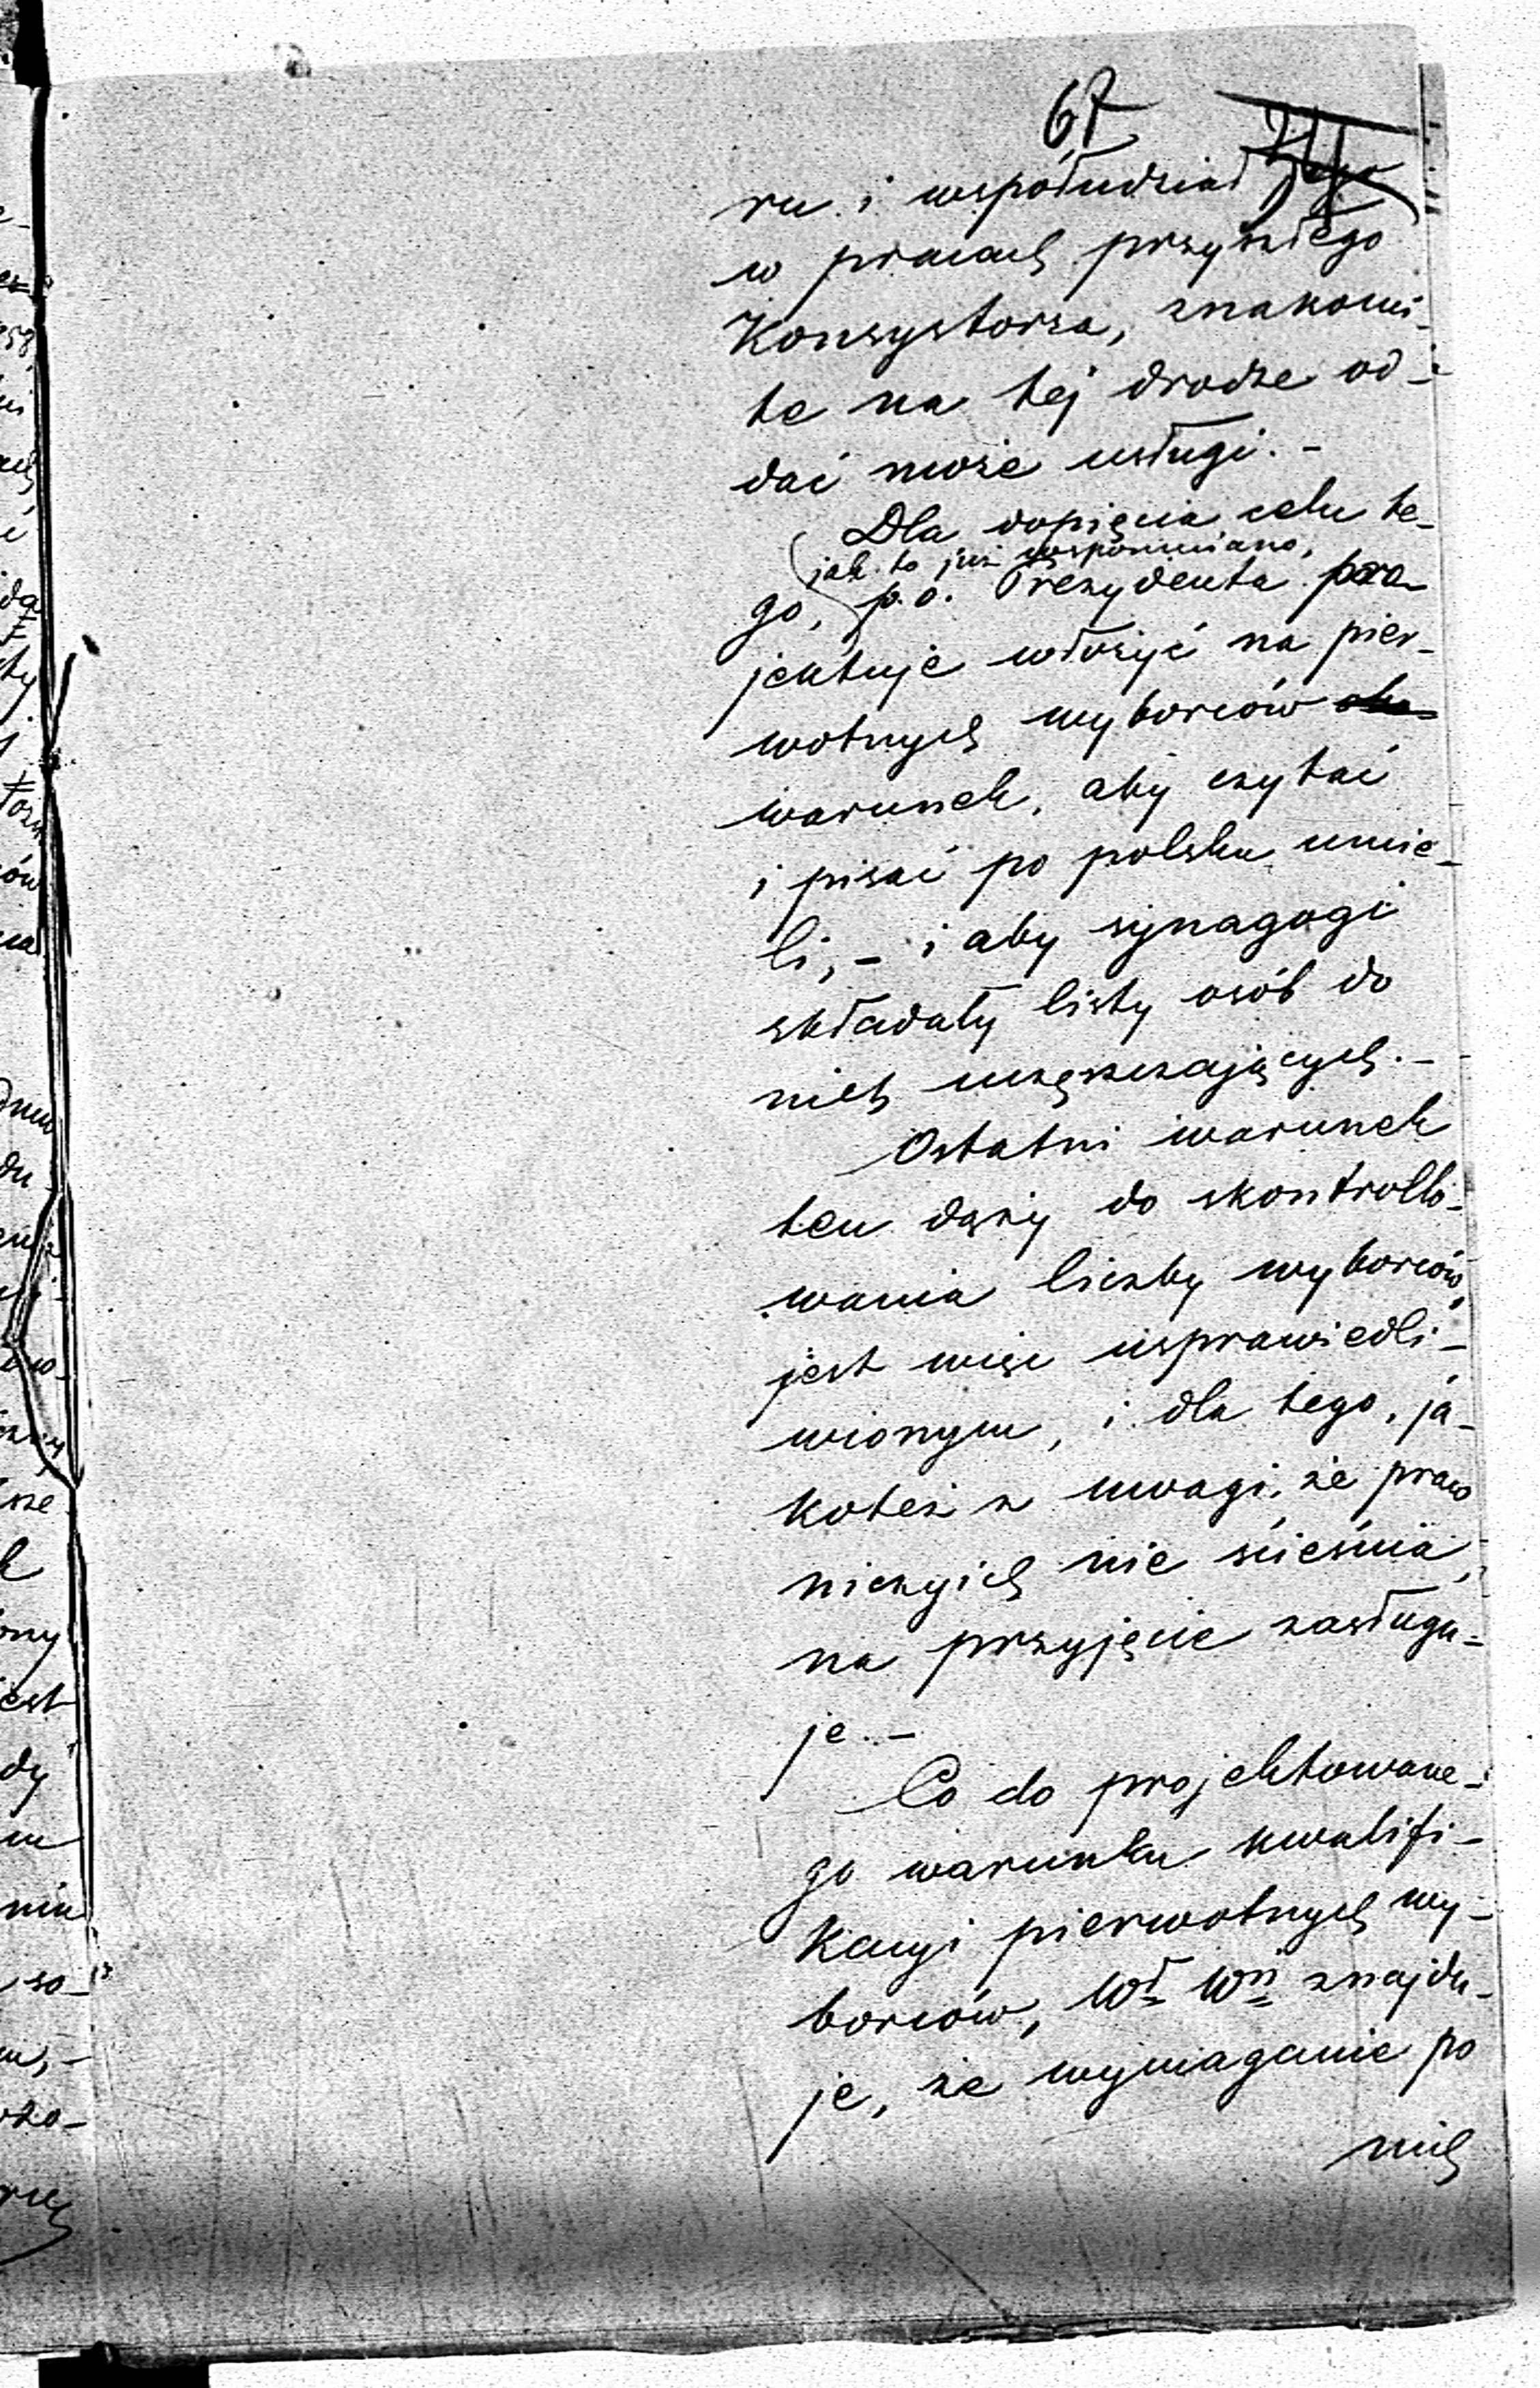 67
ru i współudział jego
w pracach przyszłego
Konsystorza, znakomi-
te na tej drodze od-
dać może usługi. -
Dla dopięcia celu te-
jak to już wspomniano,
go, p.o. Prezydenta pro-
jektuje włożyć na pier-
wotnych wyborców
warunek, aby czytać
i pisać po polsku umie-
li, - i aby synagogi
składały listy osób do
nich uczęszczających. -
Ostatni warunek
ten dąży do skontrollo-
wania liczby wyborców,
jest więc usprawiedli-
wionym, i dla tego, ja-
koteż z uwagi, że praw
niczyich nie ścieśnia,
na przyjęcie zasługu-
je. -
Co do projektowane-
go warunku kwalifi-
kacyi pierwotnych wy-
borców, Wł Wń znajdu-
je, że wymaganie po
nich